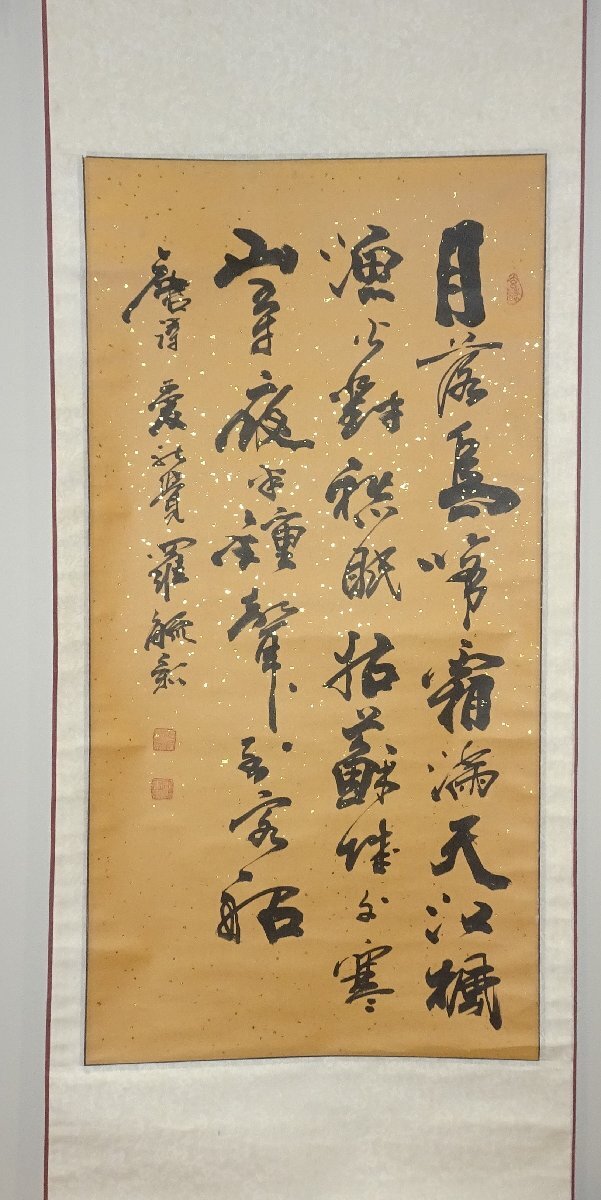 月落烏啼霜滿天江楓
漁火對愁眠姑蘇城外寒
山寺夜半鐘聲到客船
唐詩 愛新覺羅毓